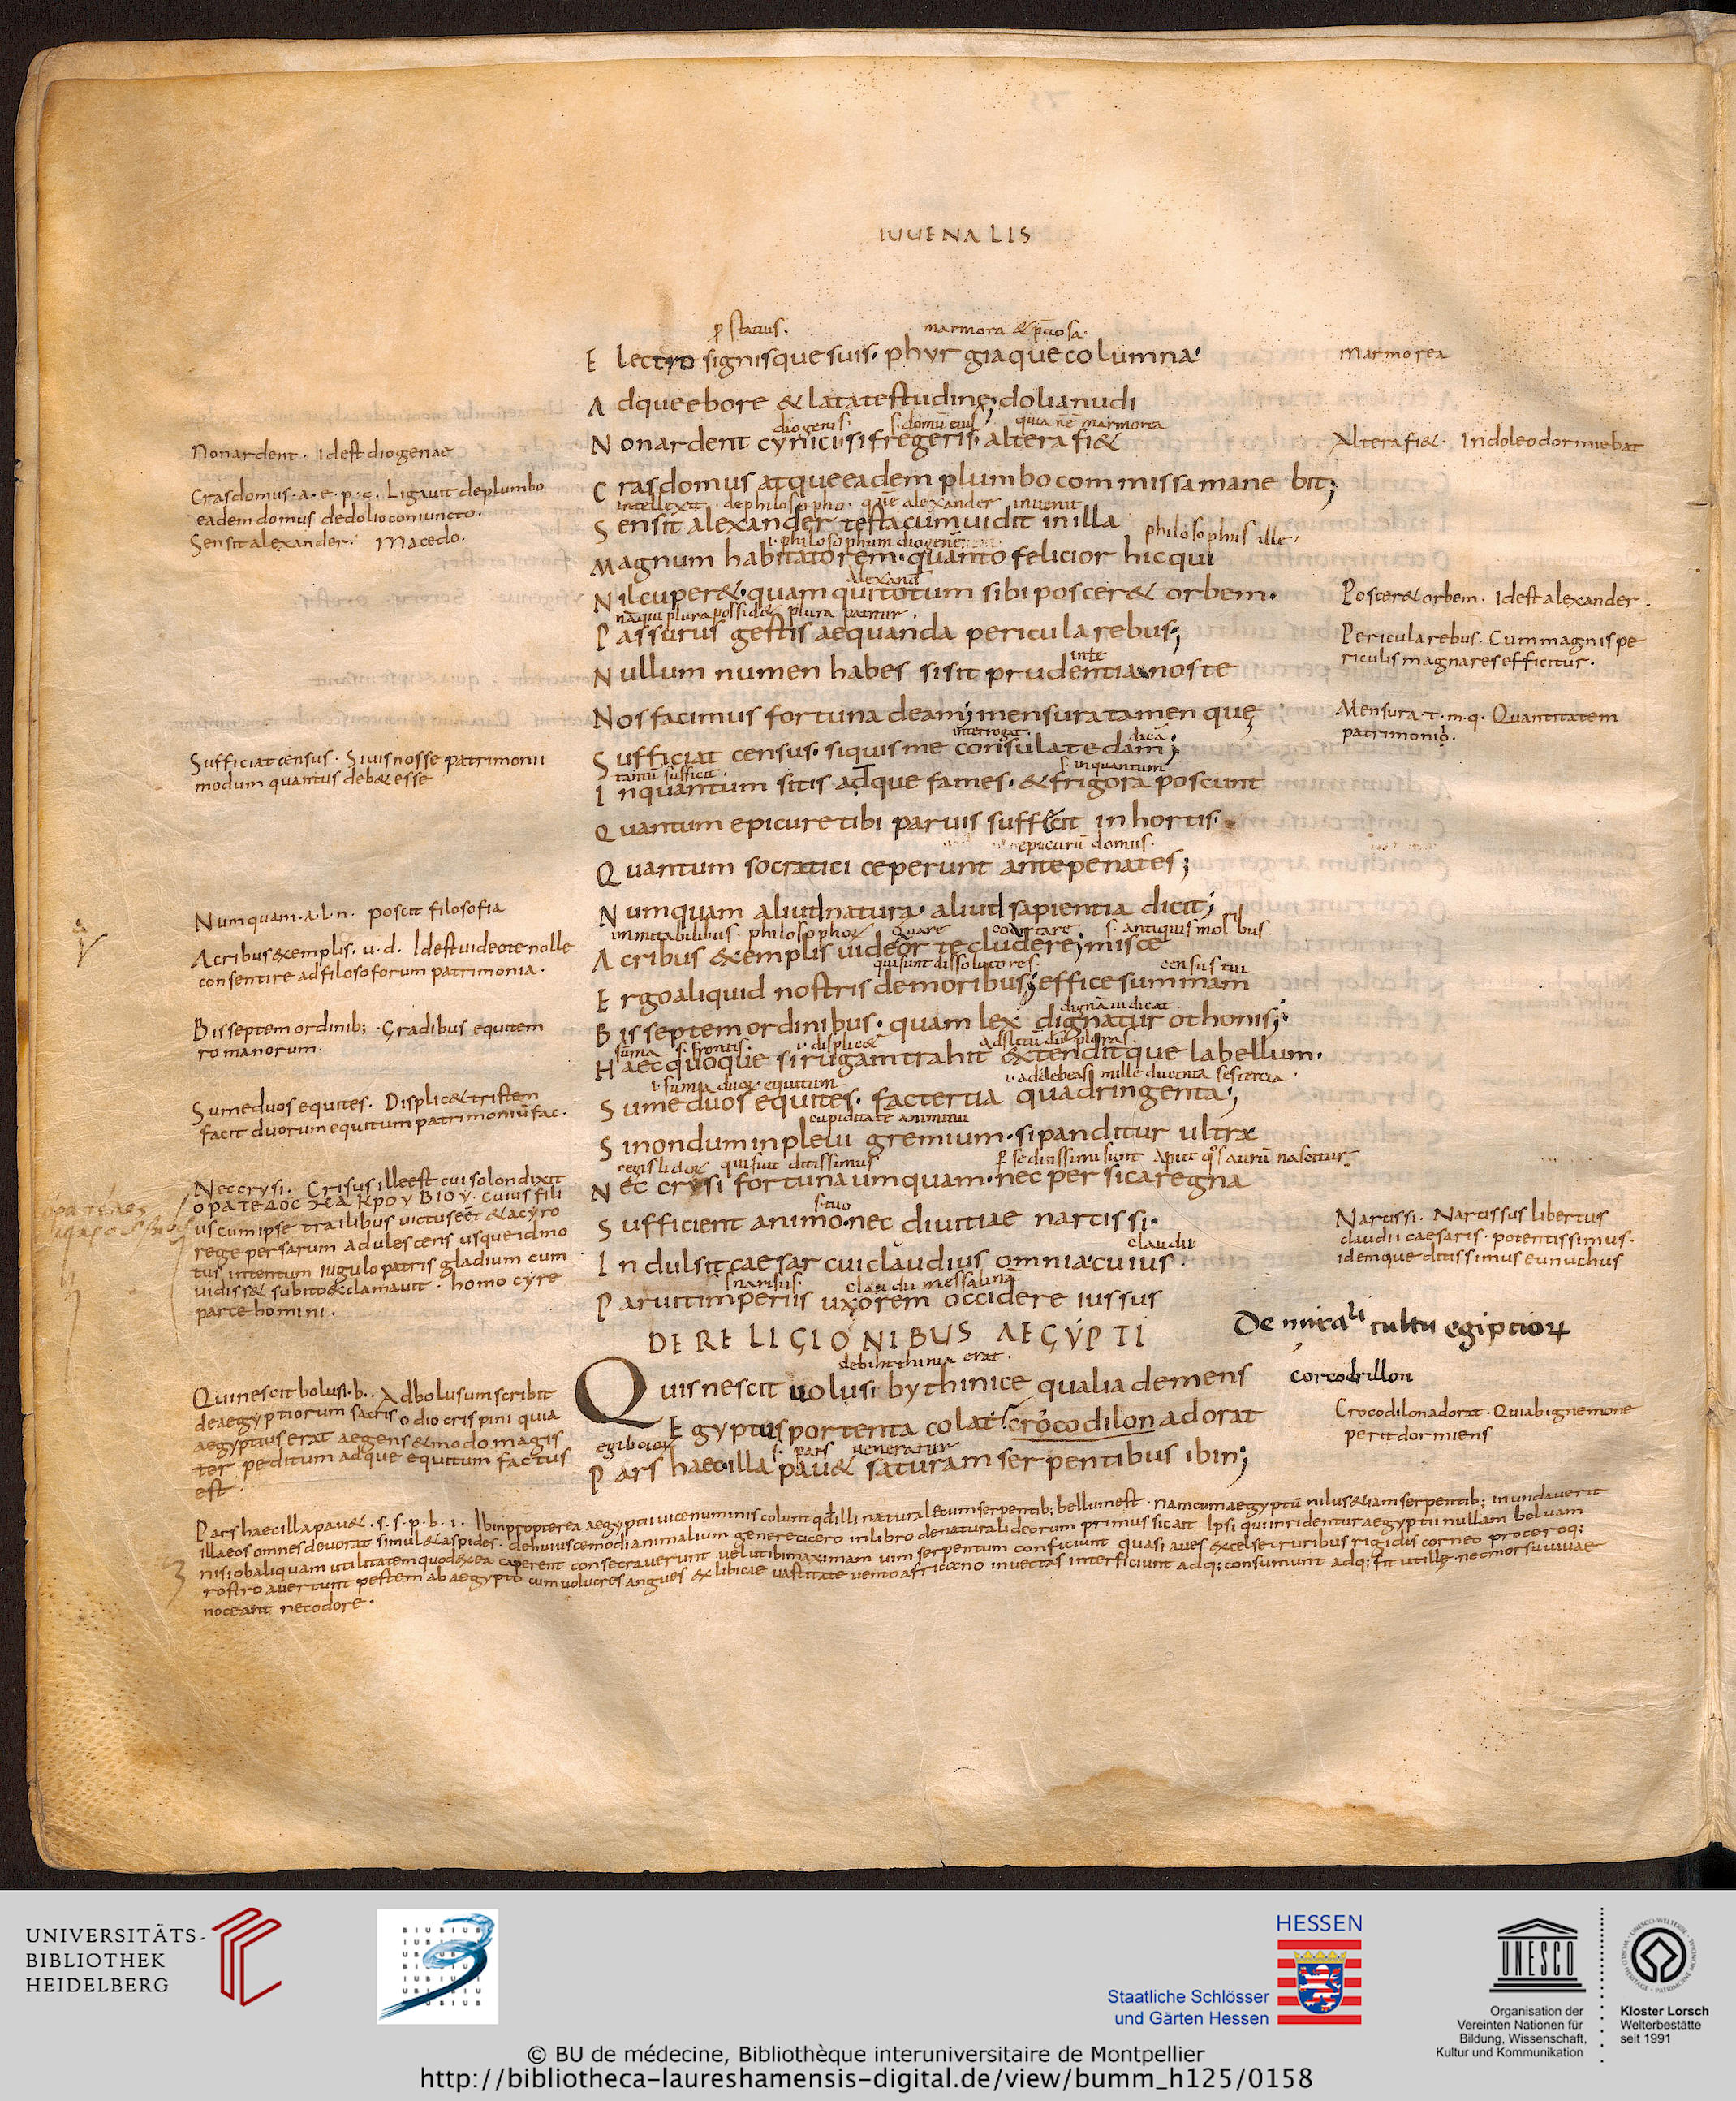 IUUENALIS
p statuis. marmora & p̄ciosa.
Electro signisque suis. phyrgiaque columna
marmorea
Adque ebore & lata testudine; dolia nudi
diogenis. s. domū eius. quia nē marmorea
Non ardent cynici. si fregeris. altera fi&
Non ardent. Idest diogenae
Altera fi&. In doleo dormiebat
Cras domus atque eadem plumbo commissa manebit;
Cras domus. a. e. p. c. Ligauit de plumbo
eadem domus de dolio coniuncto.
intellexit. de philosopho. quē alexander inuenit
Sensit alexander testa cum uidit in illa
Sensit alexander. Macedo.
i. philosophum diogenē
philosophus ille.
Magnum habitatorem. quanto felicior hic qui
Alexand
Nil cuper&. quam qui totum sibi poscer& orbem.
Poscer& orbem. Idest alexander.
nā qui plura possid& plura patitur.
Passurus gestis aequanda pericula rebus;
Pericula rebus. Cum magnis pe
riculis magna res efficitur.
inte
Nullum numen habes si sit prudentia nos te
Nos facimus fortuna deam; mensura tamen quę
Mensura. t. m. q. Quantitatem
patrimonio.
interrogat. dicā
Sufficiat census. si quis me consulat edam;
Sufficiat census. Si uis nosse patrimonii
modum quantus deb& esse
tantū sufficit. s. inquantum
Inquantum sitis adque fames. & frigora poscunt
Quantum epicure tibi paruis suffecit in hortis.
epicurū domus.
Quantum socratici ceperunt ante penates;
Numquam aliud natura. aliud sapientia dicit;
Numquam. a. l. n. poscit filosofia
inmitabilibus. philosophoꝝ quare coartare s. antiquis moribus.
Acribus exemplis uideor te cludere; misce
Acribus exemplis. u. d. Idest uideo te nolle
consentire ad filosoforum patrimonia.
qui sunt dissolutores. census tui
Ergo aliquid nostris de moribus; effice summam
dignā iudicat.
Bis septem ordinibus. quam lex dignatur othonis;
Bis septem ordinib;. Gradibus equitem
romanorum.
suma s. frontis. i. displic&
Haec quoque si rugam trahit extenditque labellum.
i. suma duoꝝ equitum i. addebeas mille ducenta sestertia.
Sume duos equites. fac tertia quadringenta;
Sume duos equites. Displic& tristem
facit duorum equitum patrimoniū fac.
cupiditate animi tui
Si nondum inpleui gremium. si panditur ultra
regis lidoꝝ qui fuit ditissimus
Nec crysi fortuna umquam. nec persica regna
Nec crysi. Crisus ille est cui solon dixit
s. tuo
Sufficient animo. nec diuitiae narcissi.
us cum ipse trailibus uictus eēt & a cyro
rege persarum adulescens usque id mo
tus intentum iugulo patris gladium cum
uidiss& subito exclamauit. homo cyre
parce homini.
Narcissi. Narcissus libertus
claudii caesaris. potentissimus.
idemque ditissimus eunuchus
claudii
Indulsit caesar cui claudius omnia cuius.
s narisus. claudii messalinā
Paruit imperiis uxorem occidere iussus
DE RELIGIONIBUS AEGYPTI
De mirali cultu egiptioꝝ
de bithinia erat.
Quis nescit uolusi bythinice qualia demens
corcodrillon
Qui nescit bolusi. b.. Ad bolusum scribit
de aegyptiorum sacris odio crispini quia
aegyptius erat aegens & modo magis
ter peditum adque equitum factus
est
Egyptus portenta colat. crocodilon adorat
Crocodilon adorat. Quia bignemone
perit dormiens
egibcioꝝ s. pars ueneratur
Pars haec. illa pau& saturam serpentibus ibin;
Pars haec illa pau&. s. s. p. b. i. Ibin propterea aegyptii uice numinis colunt qd illi naturale cum serpentib; bellum est. nam cum aegyptū nilus & iam serpentib; inundauerit
illa eos omnes deuorat simul & aspides. de huiuscemodi animalium genere cicero in libro de naturali deorum primus sic ait Ipsi qui inridentur aegyptii nullam beluam
nisi ob aliquam utilitatem quod ex ea caperent consecrauerunt uelut ibin maximam uim serpentum conficiunt quasi aues excelse cruribus rigidis corneo proceroq;
rostro auertunt pestem ab aegypto cum uolucres angues ex libicae uastitate uento africano inuectas interficiunt adq; consumunt adq; fit ut ille. nec morsu uiuae
noceant nec odore.
UNIVERSITÄTS-
BIBLIOTHEK
HEIDELBERG
HESSEN
Staatliche Schlösser
und Gärten Hessen
UNESCO
Organisation der
Vereinten Nationen für
Bildung, Wissenschaft,
Kultur und Kommunikation
Kloster Lorsch
Welterbestätte
seit 1991
© BU de médecine, Bibliothèque interuniversitaire de Montpellier
http://bibliotheca-laureshamensis-digital.de/view/bumm_h125/0158